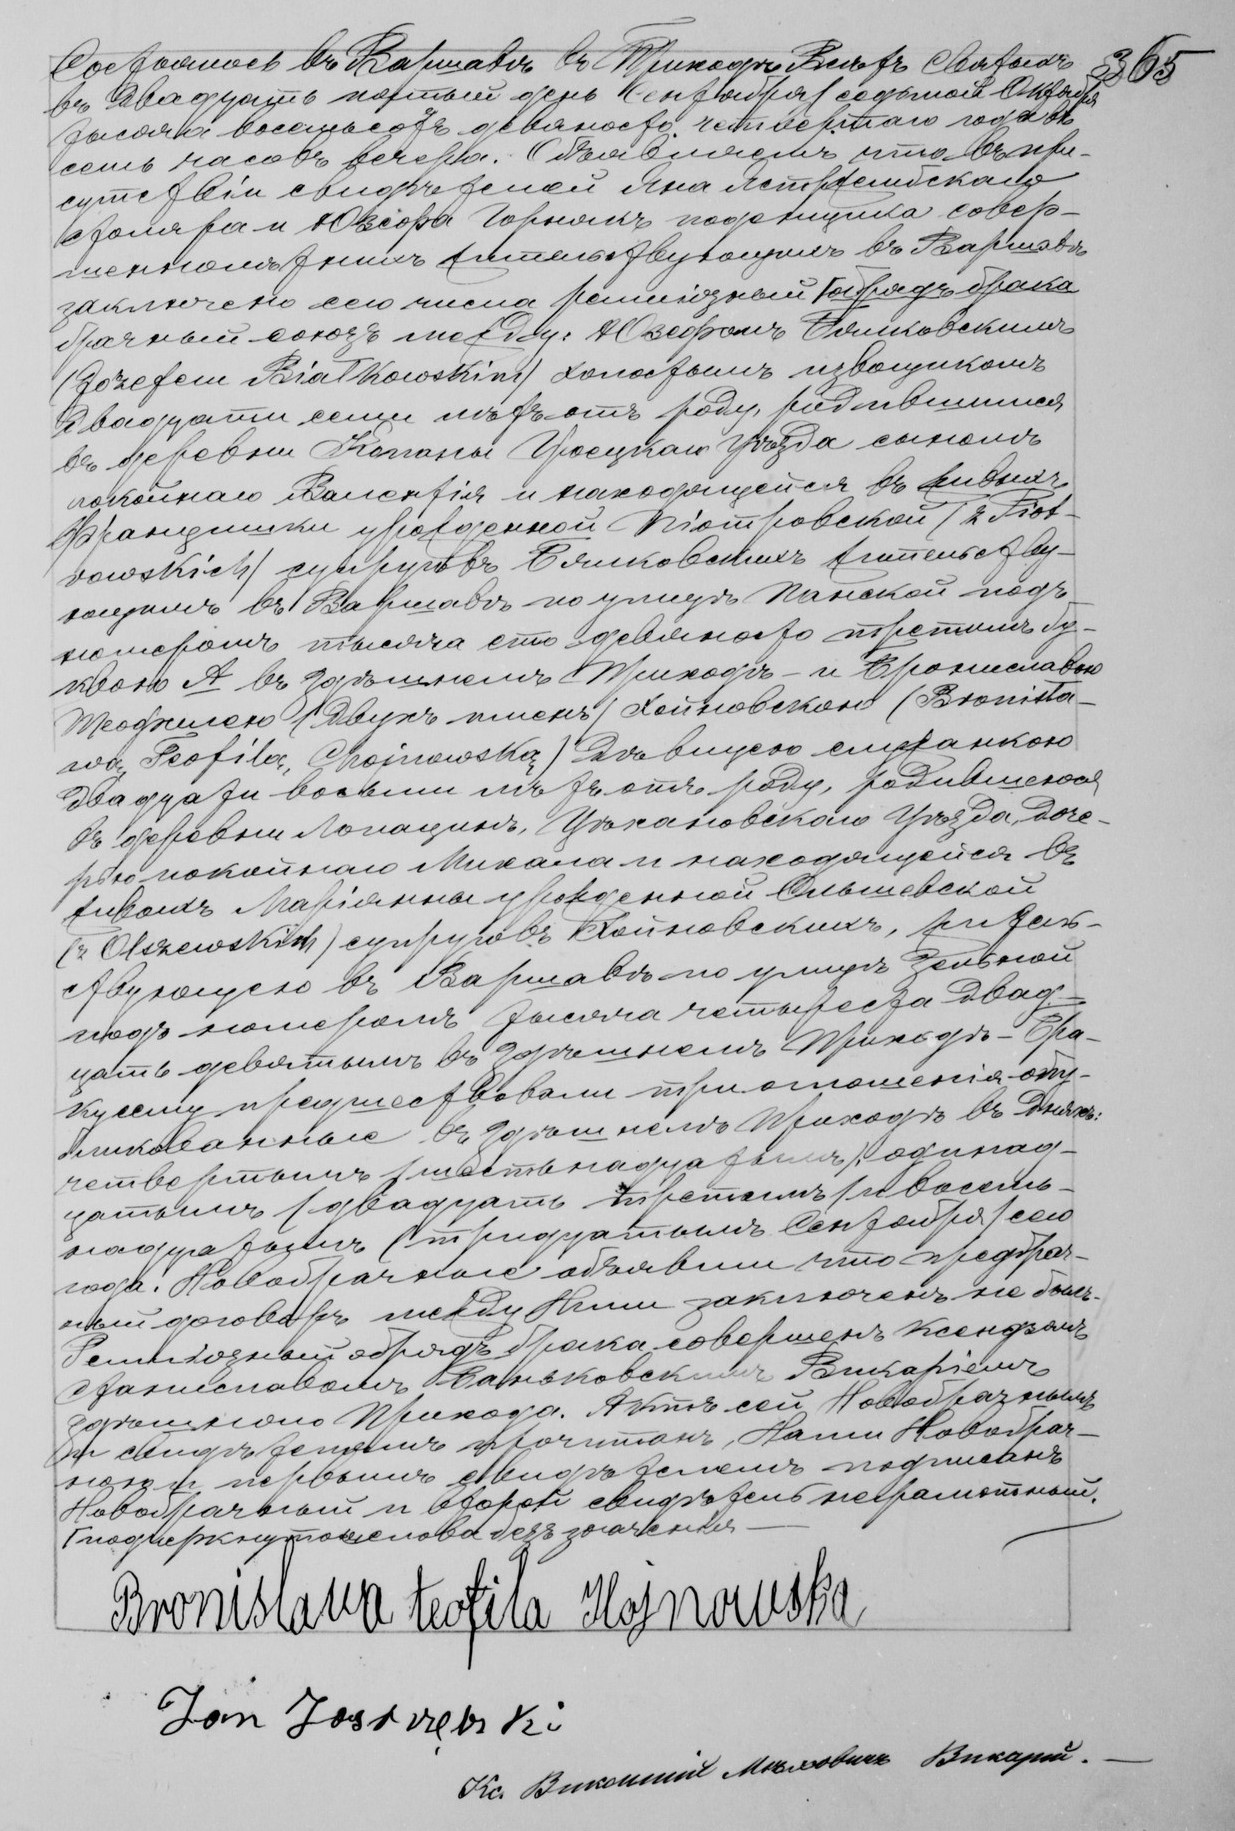 365
Состоялось въ Варшавѣ въ Приходѣ Всѣхъ Святыхъ
въ двадцать пятый день Сентября / седьмой Октября
тысяча восемьсотъ девяносто четвертаго года въ
семь часовъ вечера. Объявляемъ что въ при-
сутствіи свидѣтелей Яна Ястржембскаго
столяра и Юзефа Горнякъ поденщика совер-
шеннолѣтнихъ жительствующихъ въ Варшавѣ
заключено сего числа религіозный обрядъ брака
брачный союзъ между: Юзефомъ Бялковскимъ
(Józefem Białkowskim) холостымъ извощикомъ
двадцати семи лѣтъ отъ роду, родившимся
въ деревни Копаны Гроецкаго Уѣзда сыномъ
покойнаго Валентія и находящейся въ живыхъ
Францишки урожденной Піотровской (z Piot-
rowskich) супруговъ Бялковскихъ жительству-
ющимъ въ Варшавѣ по улицѣ Панской подъ
номеромъ тысяча сто девяносто третьимъ бу-
квою А въ здѣшнемъ Приходѣ – и Брониславою
Теофилею (двухъ именъ) Хойновскою (Bronisła-
wą Teofilą Chojnowską) Дѣвицею служанкою
двадцати восьми лѣтъ отъ роду, родившеюся
въ деревни Лопацинъ, Цѣхановскаго Уѣзда, доче-
рью покойнаго Михала и находящейся въ
живыхъ Маріанны урожденной Ольшевской
(z Olszewskich) супруговъ Хойновскихъ, житель-
ствующею въ Варшавѣ по улицѣ Зельной
подъ номеромъ тысяча четыреста двад-
цать девятымъ въ здѣшнемъ Приходѣ – Бра-
ку сему предшествовали три оглашенія опу-
бликованные въ здѣшнемъ Приходѣ въ дняхъ:
четвертымъ / шестьнадцатымъ /, одинад-
цатымъ / двадцать третьимъ / и восемь-
надцатымъ / тридцатымъ Сентября / сего
года. Новобрачные объявили что предбрач-
ный договоръ между Ними заключенъ не былъ.
Религіозный обрядъ брака совершенъ Ксендзомъ
Станиславомъ Баньковскимъ Викаріемъ
здѣшняго Прихода. Актъ сей Новобрачнымъ
и свидѣтелямъ прочитанъ, Нами Новобрач-
ною и первымъ свидѣтелемъ подписанъ
Новобрачный и второй свидѣтель неграмотный.
подчеркнутые слова безъ значенія —
Bronislawa teofila Hojnowska
Jan Jastrzębski
Кс. Викарій.